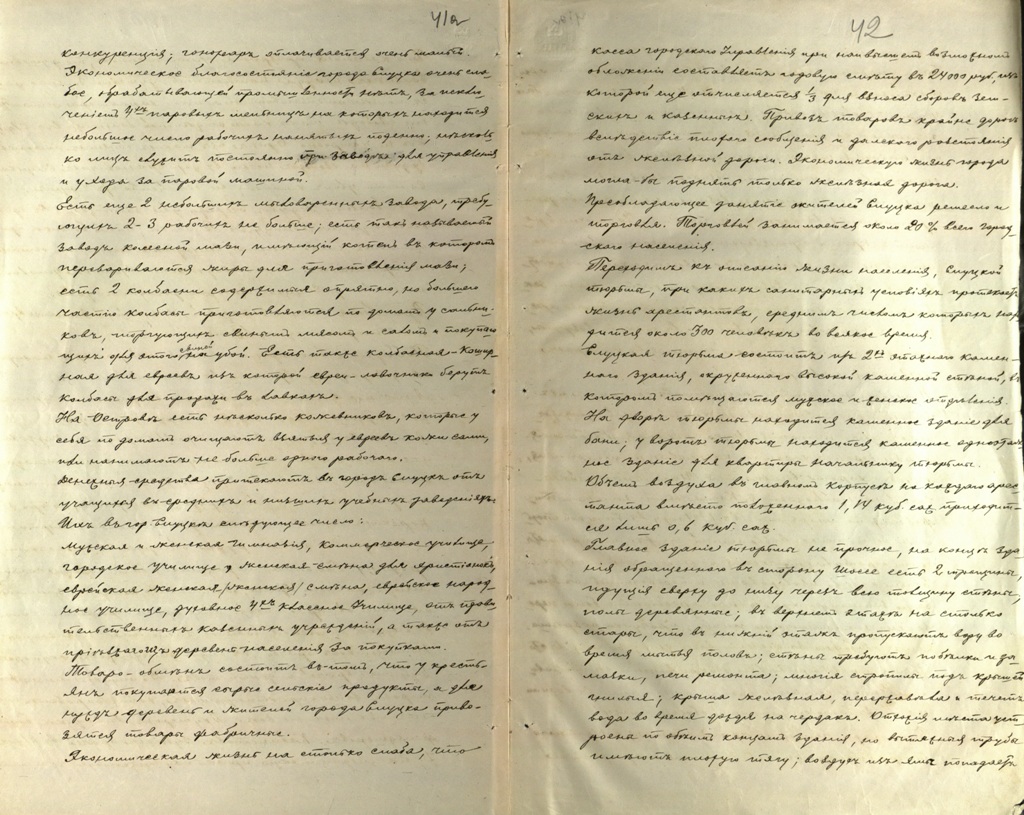 41а
конкуренція; гонораръ оплачивается очень малый.
Экономическое благосостояніе города Слуцка очень сла-
бое, обрабатывающей промышленности нѣтъ, за исклю-
ченіемъ 4хъ паровыхъ мельницъ на которыхъ находится
небольшое число рабочихъ нанятыхъ поденно; нѣсколь-
ко лицъ служитъ постоянно при заводѣ для управленія
и ухода за паровой машиной.
Есть еще 2 небольшихъ мыловаренныхъ завода, требу-
ющихъ 2-3 рабочихъ не больше; есть такъ называемый
заводъ колесной мази, имѣющій котелъ въ которомъ
перевариваются жиры для приготовленія мази;
есть 2 колбасни содержимыя опрятно, но большею
частію колбасы приготовляются по домамъ у
торгующихъ свинымъ мясомъ и саломъ и покупаю-
щихъ для этого свиней на убой. Есть также колбасная-Кошер-
ная для евреевъ изъ которой евреи-лавочники берутъ
колбасы для продажи въ лавкахъ.
На Островѣ есть нѣсколько кожевниковъ, которые у
себя по домамъ очищаютъ взятыя у евреевъ кожи сами,
или нанимаютъ не больше одного рабочаго.
Денежныя средства притекаютъ въ городъ Слуцкъ отъ
учащихся въ среднихъ и низшихъ учебныхъ заведеніяхъ.
Ихъ въ гор Слуцкѣ слѣдующее число:
Мужская и женская Гимназія, Коммерческое училище,
городское училище, женская смѣна для христіанокъ,
еврейская женская /женская/ смѣна, еврейское народ-
ное училище, духовное 4хъ классное Училище, отъ прави-
тельственныхъ казенныхъ учрежденій, а также отъ
пріѣзжающаго деревенск населенія за покупками.
Товаро-обмѣнъ состоитъ въ томъ, что у кресть-
янъ покупаются сырые сельскіе продукты, а для
нуждъ деревень и жителей города Слуцка приво-
зятся товары фабричные.
Экономическая жизнь на столько слаба, что
42
касса городского Управленія при наивысшемъ возможномъ
обложеніи составляетъ годовую смѣту въ 24000 руб. изъ
которой еще отчисляется 1/3 для взноса сборовъ зем-
скихъ и казенныхъ. Привозъ товаровъ крайне дорогъ
вслѣдствіе плохого сообщенія и далекаго разстоянія
отъ желѣзной дороги. Экономическую жизнь города
могла-бы поднять только желѣзная дорога.
Преобладающее занятіе жителей Слуцка ремесло и
торговля. Торговлей занимается около 20% всего город-
ского населенія.
Переходимъ къ описанію жизни населенія, Слуцкой
тюрьмы, при какихъ санитарныхъ условіяхъ протекаетъ
жизнь арестантовъ, среднимъ числомъ которыхъ нахо-
дится около 300 человѣкъ во всякое время.
Слуцкая тюрьма состоитъ изъ 2хъ этажнаго камен-
наго зданія, окруженнаго высокой каменной стѣной, въ
которомъ помѣщаются мужское и женское отдѣленія.
На дворѣ тюрьмы находится каменное зданіе для
бани; у воротъ тюрьмы находится каменное одноэтаж-
ное зданіе для квартиры начальнику тюрьмы.
Объемъ воздуха въ главномъ корпусѣ на каждаго арес-
танта вмѣсто положеннаго 1,14 куб. саж приходит-
ся лишь 0,6 куб. саж.
Главное зданіе тюрьмы не прочное, на концѣ зда-
нія обращеннаго въ сторону Шоссе есть 2 трещины,
идущія сверху до низу черезъ всю толщину стѣны,
полы деревянные; въ верхнемъ этажѣ на столько
стары, что въ нижній этажъ пропускаютъ воду во
время мытья половъ; стѣны требуютъ побѣлки и за-
мазки, печи ремонта; многія стропилы подъ крышей
гнилыя; крыша желѣзная, перержавѣла и течетъ
вода во время дождя на чердакъ. Отхожія мѣста уст-
роены по обѣимъ концамъ зданія, но вытяжныя трубы
имѣютъ плохую тягу; воздухъ изъ ямы попадаетъ